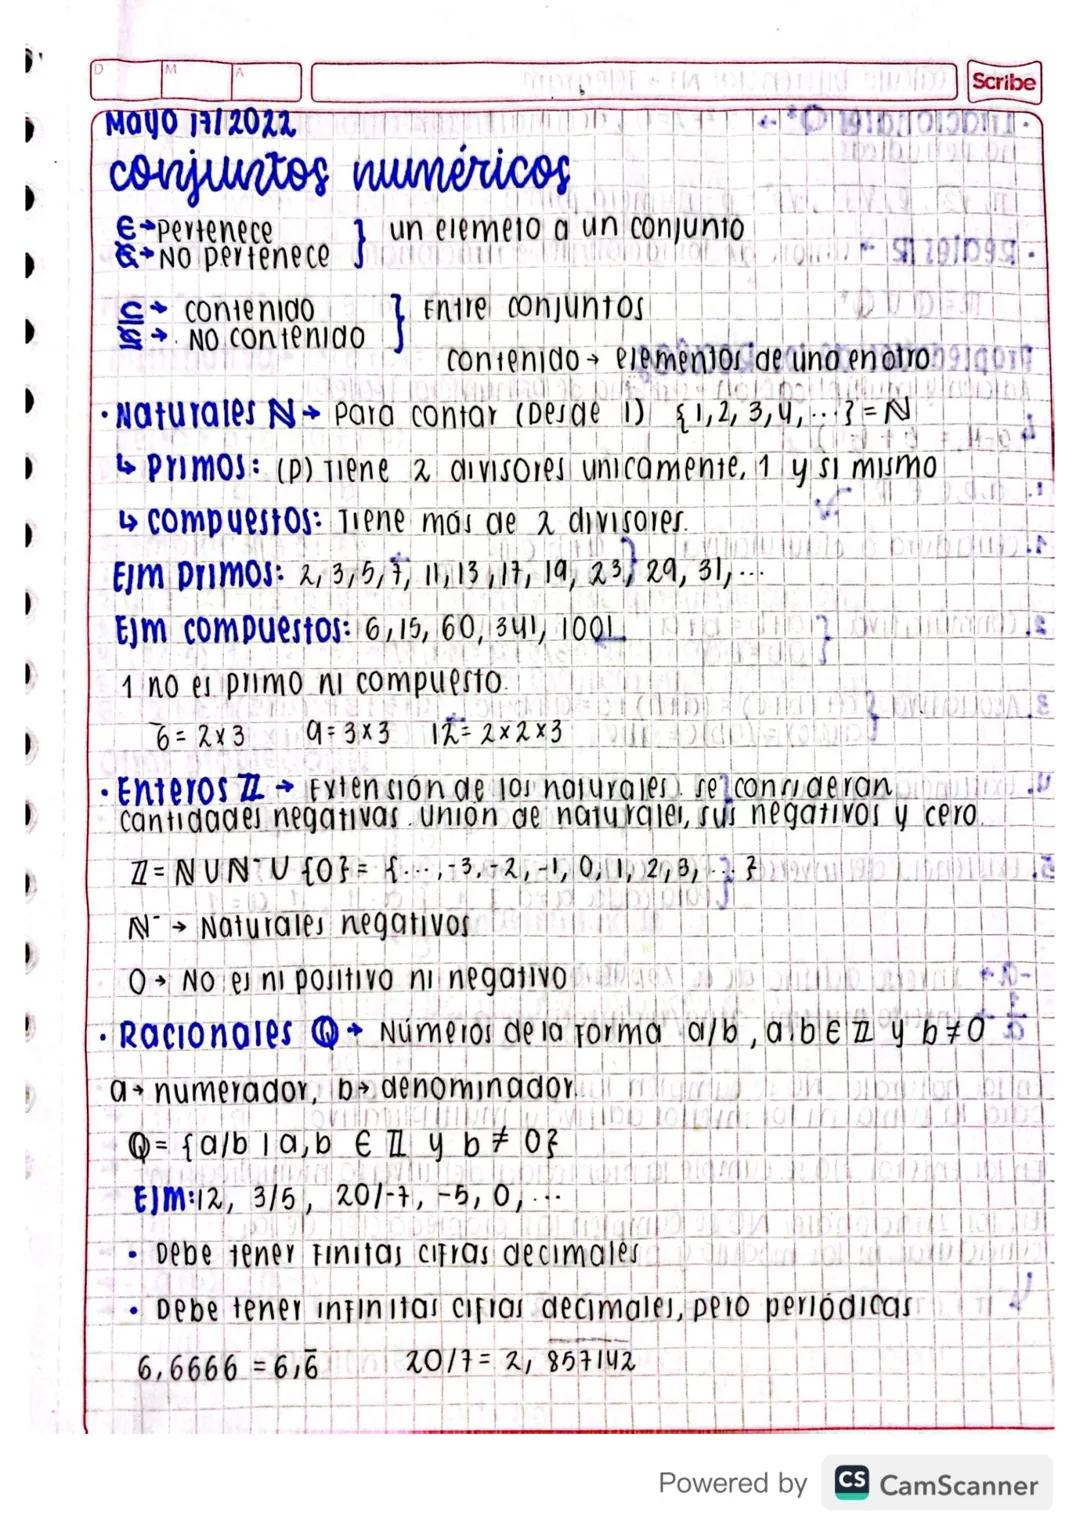 D M A
Scribe
Mayo 17/2022
conjuntos numéricos
∈→Pertenece } un elemeto a un conjunto
∉→No pertenece
⊆→ contenido } Entre conjuntos
⊈→. No contenido
contenido → elementos de uno en otro
· Naturales ℕ→ Para contar (Desde 1) {1,2,3,4,...} = ℕ
↳ Primos: (P) Tiene 2 divisores unicamente, 1 y si mismo
↳ compuestos: Tiene más de 2 divisores.
Ejm primos: 2, 3, 5, 7, 11, 13, 17, 19, 23, 29, 31,...
Ejm compuestos: 6, 15, 60, 341, 1001
1 no es primo ni compuesto.
6 = 2x3 9 = 3x3 12 = 2x2x3
· Enteros ℤ → Extensión de los naturales. se consideran
cantidades negativas. unión de naturales, sus negativos y cero.
ℤ = ℕ U ℕ⁻ U {0} = {..., -3, -2, -1, 0, 1, 2, 3, ...}
ℕ⁻ → Naturales negativos
0 → No es ni positivo ni negativo
· Racionales ℚ → Números de la forma a/b, a.b ∈ ℤ y b ≠ 0
a → numerador, b → denominador.
ℚ = {a/b | a,b ∈ ℤ y b ≠ 0}
EJM: 12, 3/5, 20/-7, -5, 0, ...
• Debe tener finitas cifras decimales
• Debe tener infinitas cifras decimales, pero periódicas
6,6666 = 6,6̅ 20/7 = 2, 8̅5̅7̅1̅4̅2̅
Powered by CS CamScanner